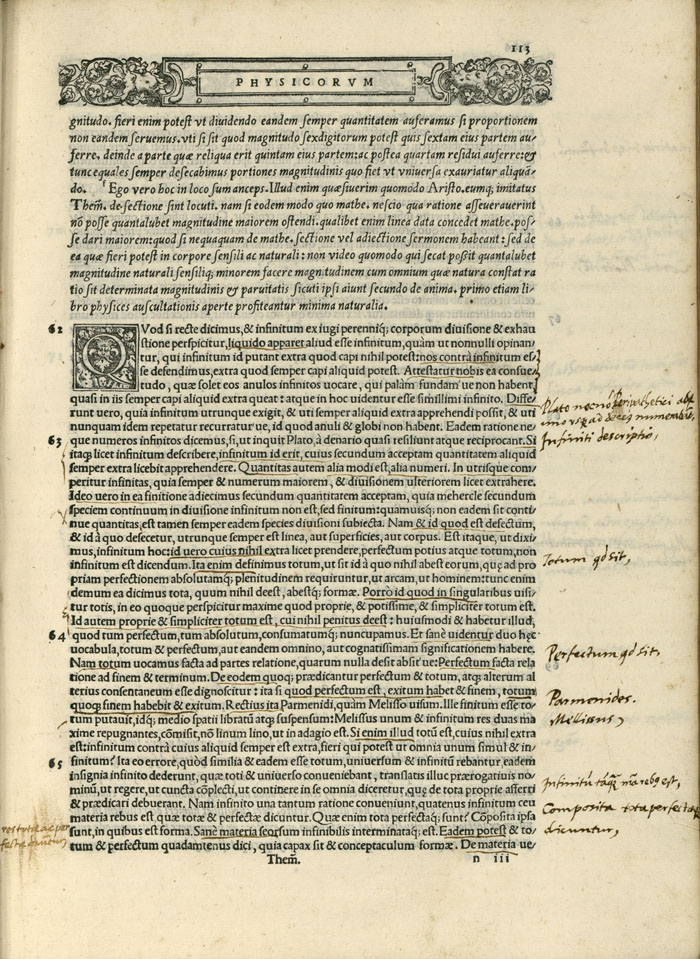 113
PHYSICORVM
gnitudo. fieri enim potest vt diuidendo eandem semper quantitatem auferamus si proportionem
non eandem seruemus. vti si sit quod magnitudo sexdigitorum potest quis sextam eius partem au/
ferre. deinde a parte quæ reliqua erit quintam eius partem: ac postea quartam residui auferre: &
tunc equales semper desecabimus portiones magnitudinis quo fiet vt vniuersa exauriatur aliquã/
do. Ego vero hoc in loco sum anceps. Illud enim quæsiuerim quomodo Aristo. eumq; imitatus
Them. de sectione sint locuti. nam si eodem modo quo mathe. nescio qua ratione asseuerauerint
nõ posse quantalubet magnitudine maiorem ostendi. qualibet enim linea data concedet mathe. pos/
se dari maiorem: quod si nequaquam de mathe. sectione vel adiectione sermonem habeant: sed de
ea quæ fieri potest in corpore sensili ac naturali: non video quomodo qui secat possit quantalubet
magnitudine naturali sensiliq; minorem facere magnitudinem cum omnium quæ natura constat ra
tio sit determinata magnitudinis & paruitatis sicuti ipsi aiunt secundo de anima. primo etiam li/
bro physices auscultationis aperte profiteantur minima naturalia.
62 QVod si recte dicimus, & infinitum ex iugi perenniq; corporum diuisione & exhau
stione perspicitur, liquido apparet aliud esse infinitum, quàm ut nonnulli opinan/
tur, qui infinitum id putant extra quod capi nihil potest: nos contrà infinitum es/
se defendimus, extra quod semper capi aliquid potest. Attestatur nobis ea consue/
tudo, quæ solet eos anulos infinitos uocare, qui palàm fundam ue non habent,
quasi in iis semper capi aliquid extra queat: atque in hoc uidentur esse simillimi infinito. Diffe/
runt uero, quia infinitum utrunque exigit, & uti semper aliquid extra apprehendi possit, & uti
nunquam idem repetatur recurratur ue, id quod anuli & globi non habent. Eadem ratione ne/
63 que numeros infinitos dicemus, si, ut inquit Plato, à denario quasi resiliunt atque reciprocant. Si
itaq; licet infinitum describere, infinitum id erit, cuius secundum acceptam quantitatem aliquid
semper extra licebit apprehendere. Quantitas autem alia modi est, alia numeri. In utrisque com/
peritur infinitas, quia semper & numerum maiorem, & diuisionem ulteriorem licet extrahere.
Ideo uero in ea finitione adiecimus secundum quantitatem acceptam, quia mehercle secundum
speciem continuum in diuisione infinitum non est, sed finitum: quamuisq; non eadem sit conti/
nue quantitas, est tamen semper eadem species diuisioni subiecta. Nam & id quod est desectum,
& id à quo desecetur, utrunque semper est linea, aut superficies, aut corpus. Est itaque, ut dixi/
mus, infinitum hoc: id uero cuius nihil extra licet prendere, perfectum potius atque totum, non
infinitum est dicendum. Ita enim definimus totum, ut sit id à quo nihil abest eorum, quę ad pro
priam perfectionem absolutamq; plenitudinem requiruntur, ut arcam, ut hominem: tunc enim
demum ea dicimus tota, quum nihil deest, abestq; formæ. Porrò id quod in singularibus uisi/
tur totis, in eo quoque perspicitur maxime quod proprie, & potissime, & simpliciter totum est.
Id autem proprie & simpliciter totum est, cui nihil penitus deest: huiusmodi & habetur illud,
64 quod tum perfectum, tum absolutum, consumatumq; nuncupamus. Et sanè uidentur duo hęc
uocabula, totum & perfectum, aut eandem omnino, aut cognatissimam significationem habere.
Nam totum uocamus facta ad partes relatione, quarum nulla desit absit ue: Perfectum facta rela
tione ad finem & terminum. De eodem quoq; prædicantur perfectum & totum, atq; alterum al
terius consentaneum esse dignoscitur: ita si quod perfectum est, exitum habet & finem, totum
quoq; finem habebit & exitum. Rectius ita Parmenidi, quàm Melisso uisum. Ille finitum esse to/
tum putauit, idq; medio spatii libratũ atq; suspensum: Melissus unum & infinitum res duas ma
xime repugnantes, cõmisit, nõ linum lino, ut in adagio est. Si enim illud totũ est, cuius nihil extra
est: infinitum contrà cuius aliquid semper est extra, fieri qui potest ut omnia unum simul & in/
65 finitum? Ita eo errore, quòd similia & eadem esse totum, uniuersum & infinitũ rebantur, eadem
insignia infinito dederunt, quæ toti & uniuerso conueniebant, translatis illuc prærogatiuis no/
minũ, ut regere, ut cuncta cõplecti, ut continere in se omnia diceretur, quę de tota proprie afferri
& prædicari debuerant. Nam infinito una tantum ratione conueniunt, quatenus infinitum ceu
materia rebus est, quæ totæ & perfectæ dicuntur. Quæ enim tota perfectaq; sunt? Cõposita ipsa
sunt, in quibus est forma. Sanè materia seorsum infinibilis interminataq; est. Eadem potest & to
tum & perfectum quadamtenus dici, quia capax sit & conceptaculum formæ. De materia ue/
Them. n iii
Infiniti descriptio,
Totum qd sit,
Perfectum qd sit,
Parmenides.
Mellissus,
Composita tota perfectaq
dicuntur,